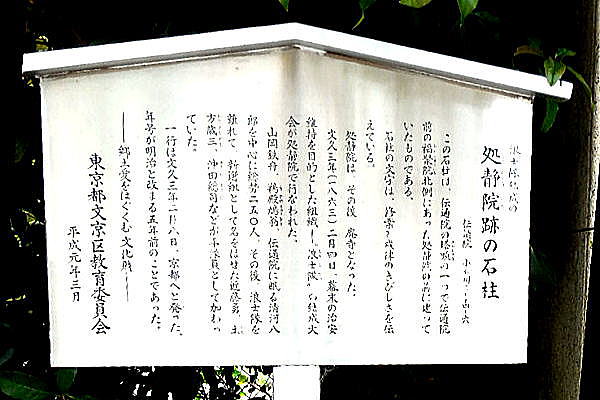 浪士隊結成の
処静院跡の石柱
伝通院 小石川三-十四-六
この石柱は、伝通院の塔頭の一つで伝通院
前の福聚院北側にあった処静院の前に建って
いたものである。
石柱の文字は、修業と戒律のきびしさを伝
えている。
処静院は、その後、廃寺となった。
文久三年(一八六三)二月四日、幕末の治安
維持を目的とした組織・"浪士隊"の結成大
会が処静院で行なわれた。
山岡鉄舟、鵜殿鳩翁、伝通院に眠る清河八
郎を中心に総勢二五〇人、その後、浪士隊を
離れて、新選組として名をはせた近藤勇、土
方歳三、沖田総司などが平隊員として加わっ
ていた。
一行は文久三年二月八日、京都へと発った。
年号が明治と改まる五年前のことであった。
―郷土愛をはぐくむ文化財―
東京都文京区教育委員会
平成元年三月